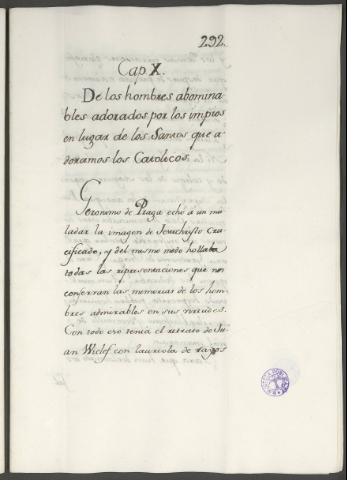 292.
Cap. X.
De los hombres abomina
bles adorados por los impios
en lugar de los Santos que a-
doramos los Catolicos.
Geronimo de Praga echó á un mu
ladar la imagen de Jesuchristo Cru
cificado, y del mismo modo hollaba
todas las representaciones que nos
conservan las memorias de los hom
bres admirables en sus virtudes.
Con todo eso tenia el retrato de Ju
an Wiclef con laureola de rayos